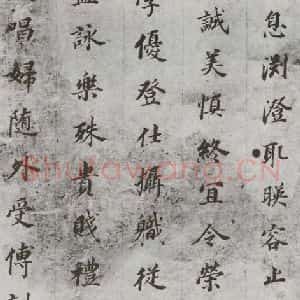 息渊澄取暎容止
誠美慎終宜令榮
學優登仕攝職従
詠樂殊貴賤禮
唱婦随外受傅訓
Shufawang.CN